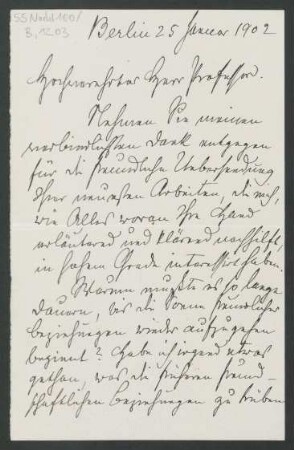 SS Nachl. 160/
B, 1203
Berlin 25 Januar 1902
Hochverehrter Herr Professor.
Nehmen Sie meinen
verbindlichsten Dank entgegen
für die freundliche Uebersendung
Ihrer neuesten Arbeiten, die mich,
wie Alles woran Ihre Hand
erläuternd und klärend nachhilft,
in hohem Grade interessirt haben.
Warum musste es so lange
dauern, bis die Sonne freundlicher
Beziehungen wieder aufzugehen
beginnt? Habe ich irgend etwas
gethan, was die früheren freund-
schaftlichen Beziehungen zu trüben